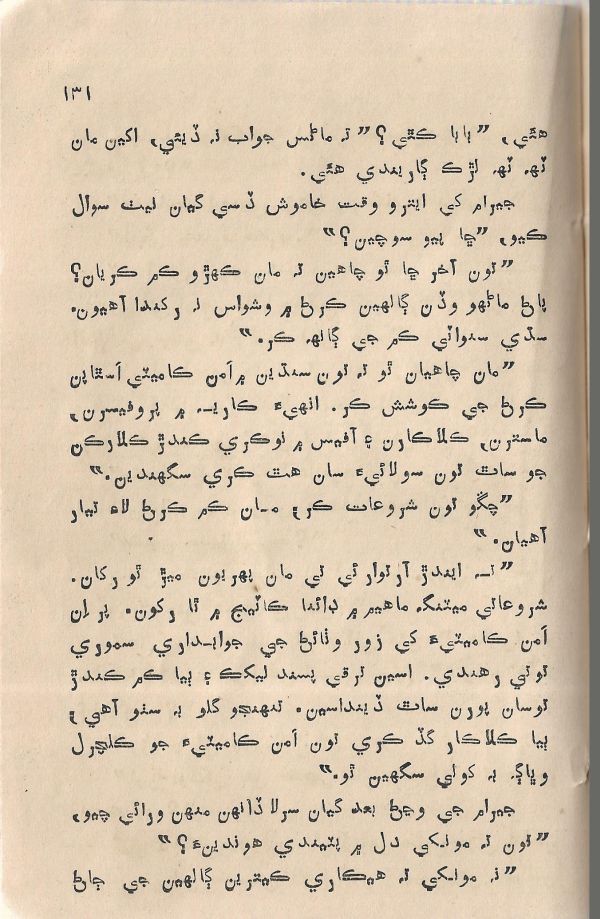 ١٣١
هئي، ”بابا ڪٿي؟“ تہ ماڻس جواب نہ ڏيئي، اکين مان
ٽھہ ٽھہ لڙڪ ڳاريندي هئي.
جيرام کي ايترو وقت خاموش ڏسي گيان ليٽ سوال
ڪيو، ”ڇا پيو سوچين؟“
”تون آخر ڇا ٿو چاهين تہ مان ڪهڙو ڪم ڪريان؟
پاڻ ماڻهو وڏن ڳالهين ڪرڻ ۾ وشواس نہ رکندا آهيون.
سڌي سنوائي ڪم جي ڳالهہ ڪر.“
”مان چاهيان ٿو تہ تون سنڌين ۾ اَمن ڪاميٽي اَسٿاپن
ڪرڻ جي ڪوشش ڪر. انهيءَ ڪاريہ ۾ پروفيسرن،
ماسترن، ڪلاڪارن ۽ آفيس ۾ نوڪري ڪندڙ ڪلارڪن
جو ساٿ تون سولائيءَ سان هٿ ڪري سگهندين.“
”چڱو تون شروعات ڪر، مان ڪم ڪرڻ لاءِ تيار
آهيان.“
”تہ ايندڙ آرتوار تي مان پهريون ميڙ ٿو رکان.
شروعاتي ميٽنگ ماهيم ۾ ڊائنا ڪاٽيج ۾ ٿا رکون. پر اِن
اَمن ڪاميٽيءَ کي زور وٺائڻ جي جوابداري سموري
توتي رهندي. اسين ترقي پسند ليکڪ ۽ ٻيا ڪم ڪندڙ
توسان پورن ساٿ ڏينداسين. تنهنجو گلو بہ سٺو آهي،
ٻيا ڪلاڪار گڏ ڪري تون اَمن ڪاميٽيءَ جو ڪلچرل
وڀاڳ بہ کولي سگهين ٿو.“
جيرام جي وڃڻ بعد گيان سرلا ڏانهن منهن ورائي چيو،
”تون تہ مونکي دل ۾ پٽيندي هوندينءَ؟“
”نہ مونکي تہ هيڪاري ڪيترين ڳالهين جي ڄاڻ